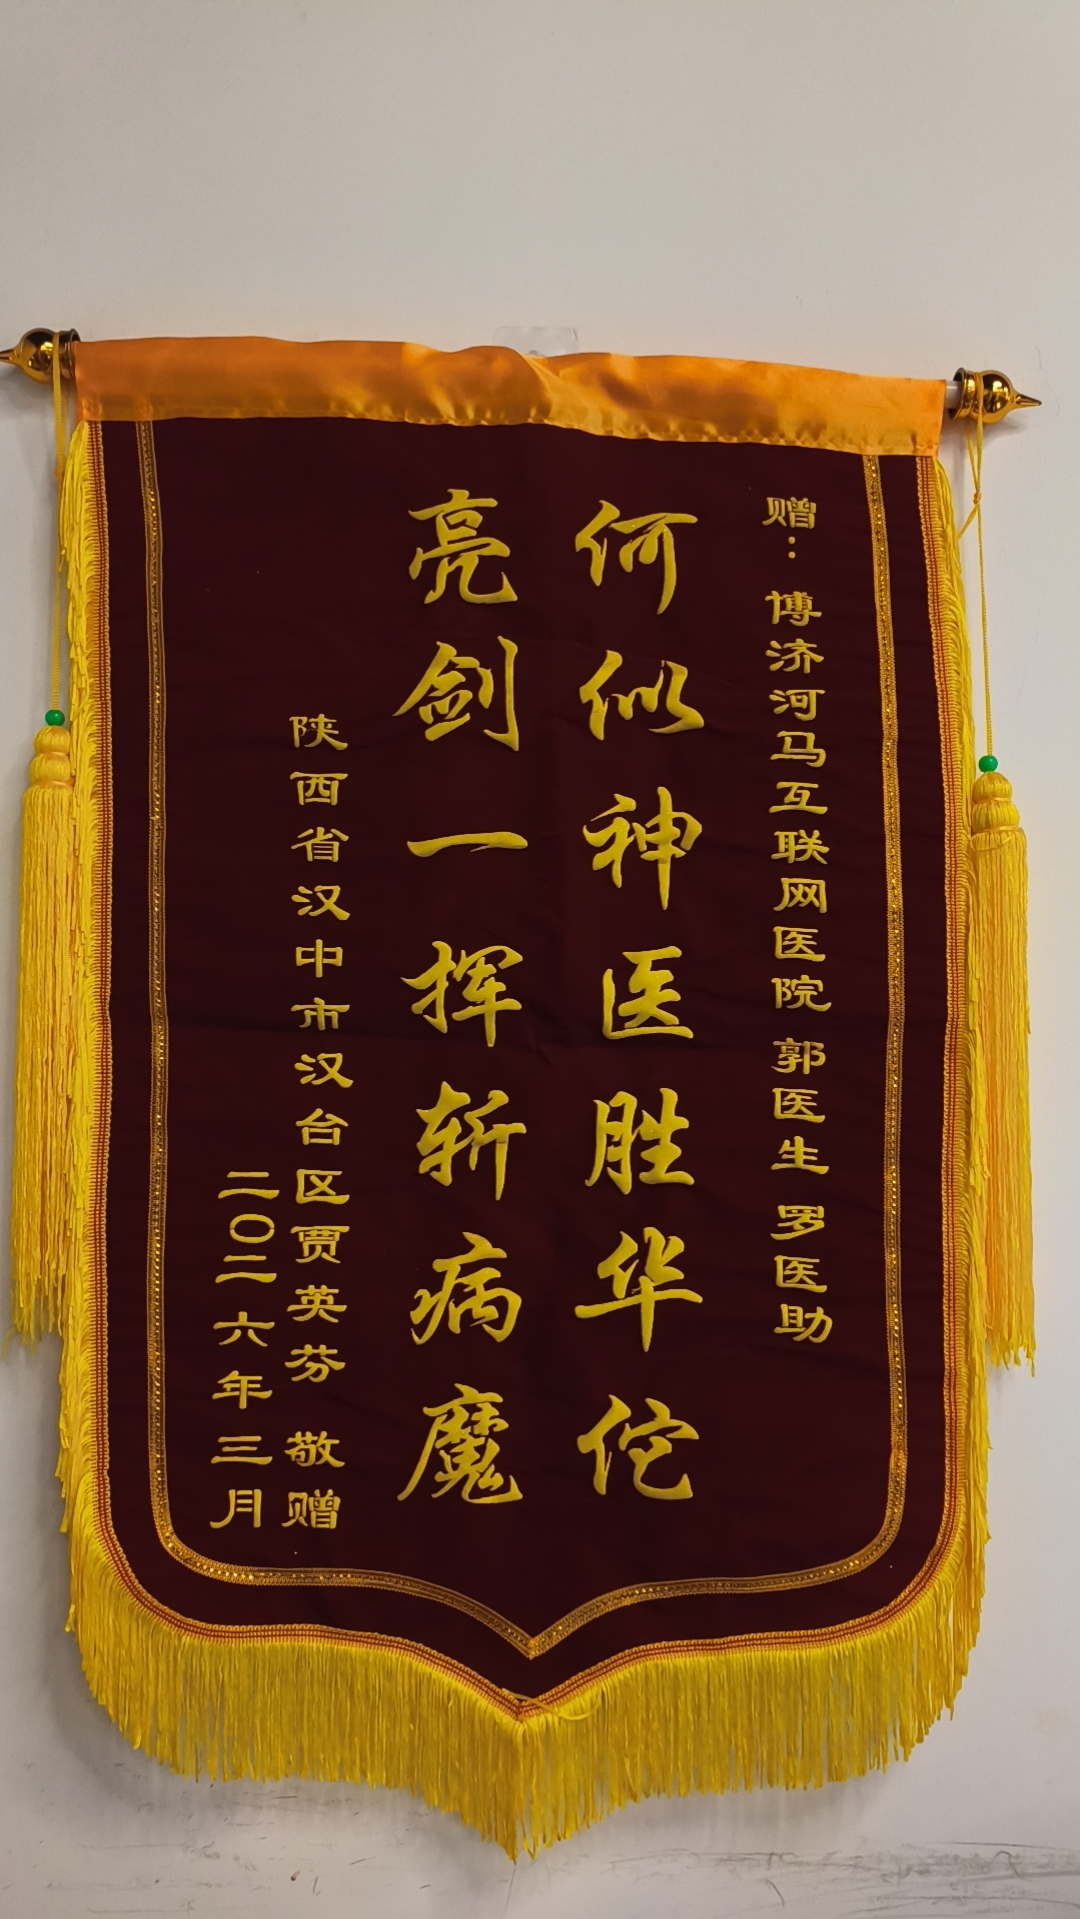 赠：博济河马互联网医院 郭医生 罗医助
何似神医胜华佗
亮剑一挥斩病魔
陕西省汉中市汉台区贾英芬 敬赠
二〇二六年三月